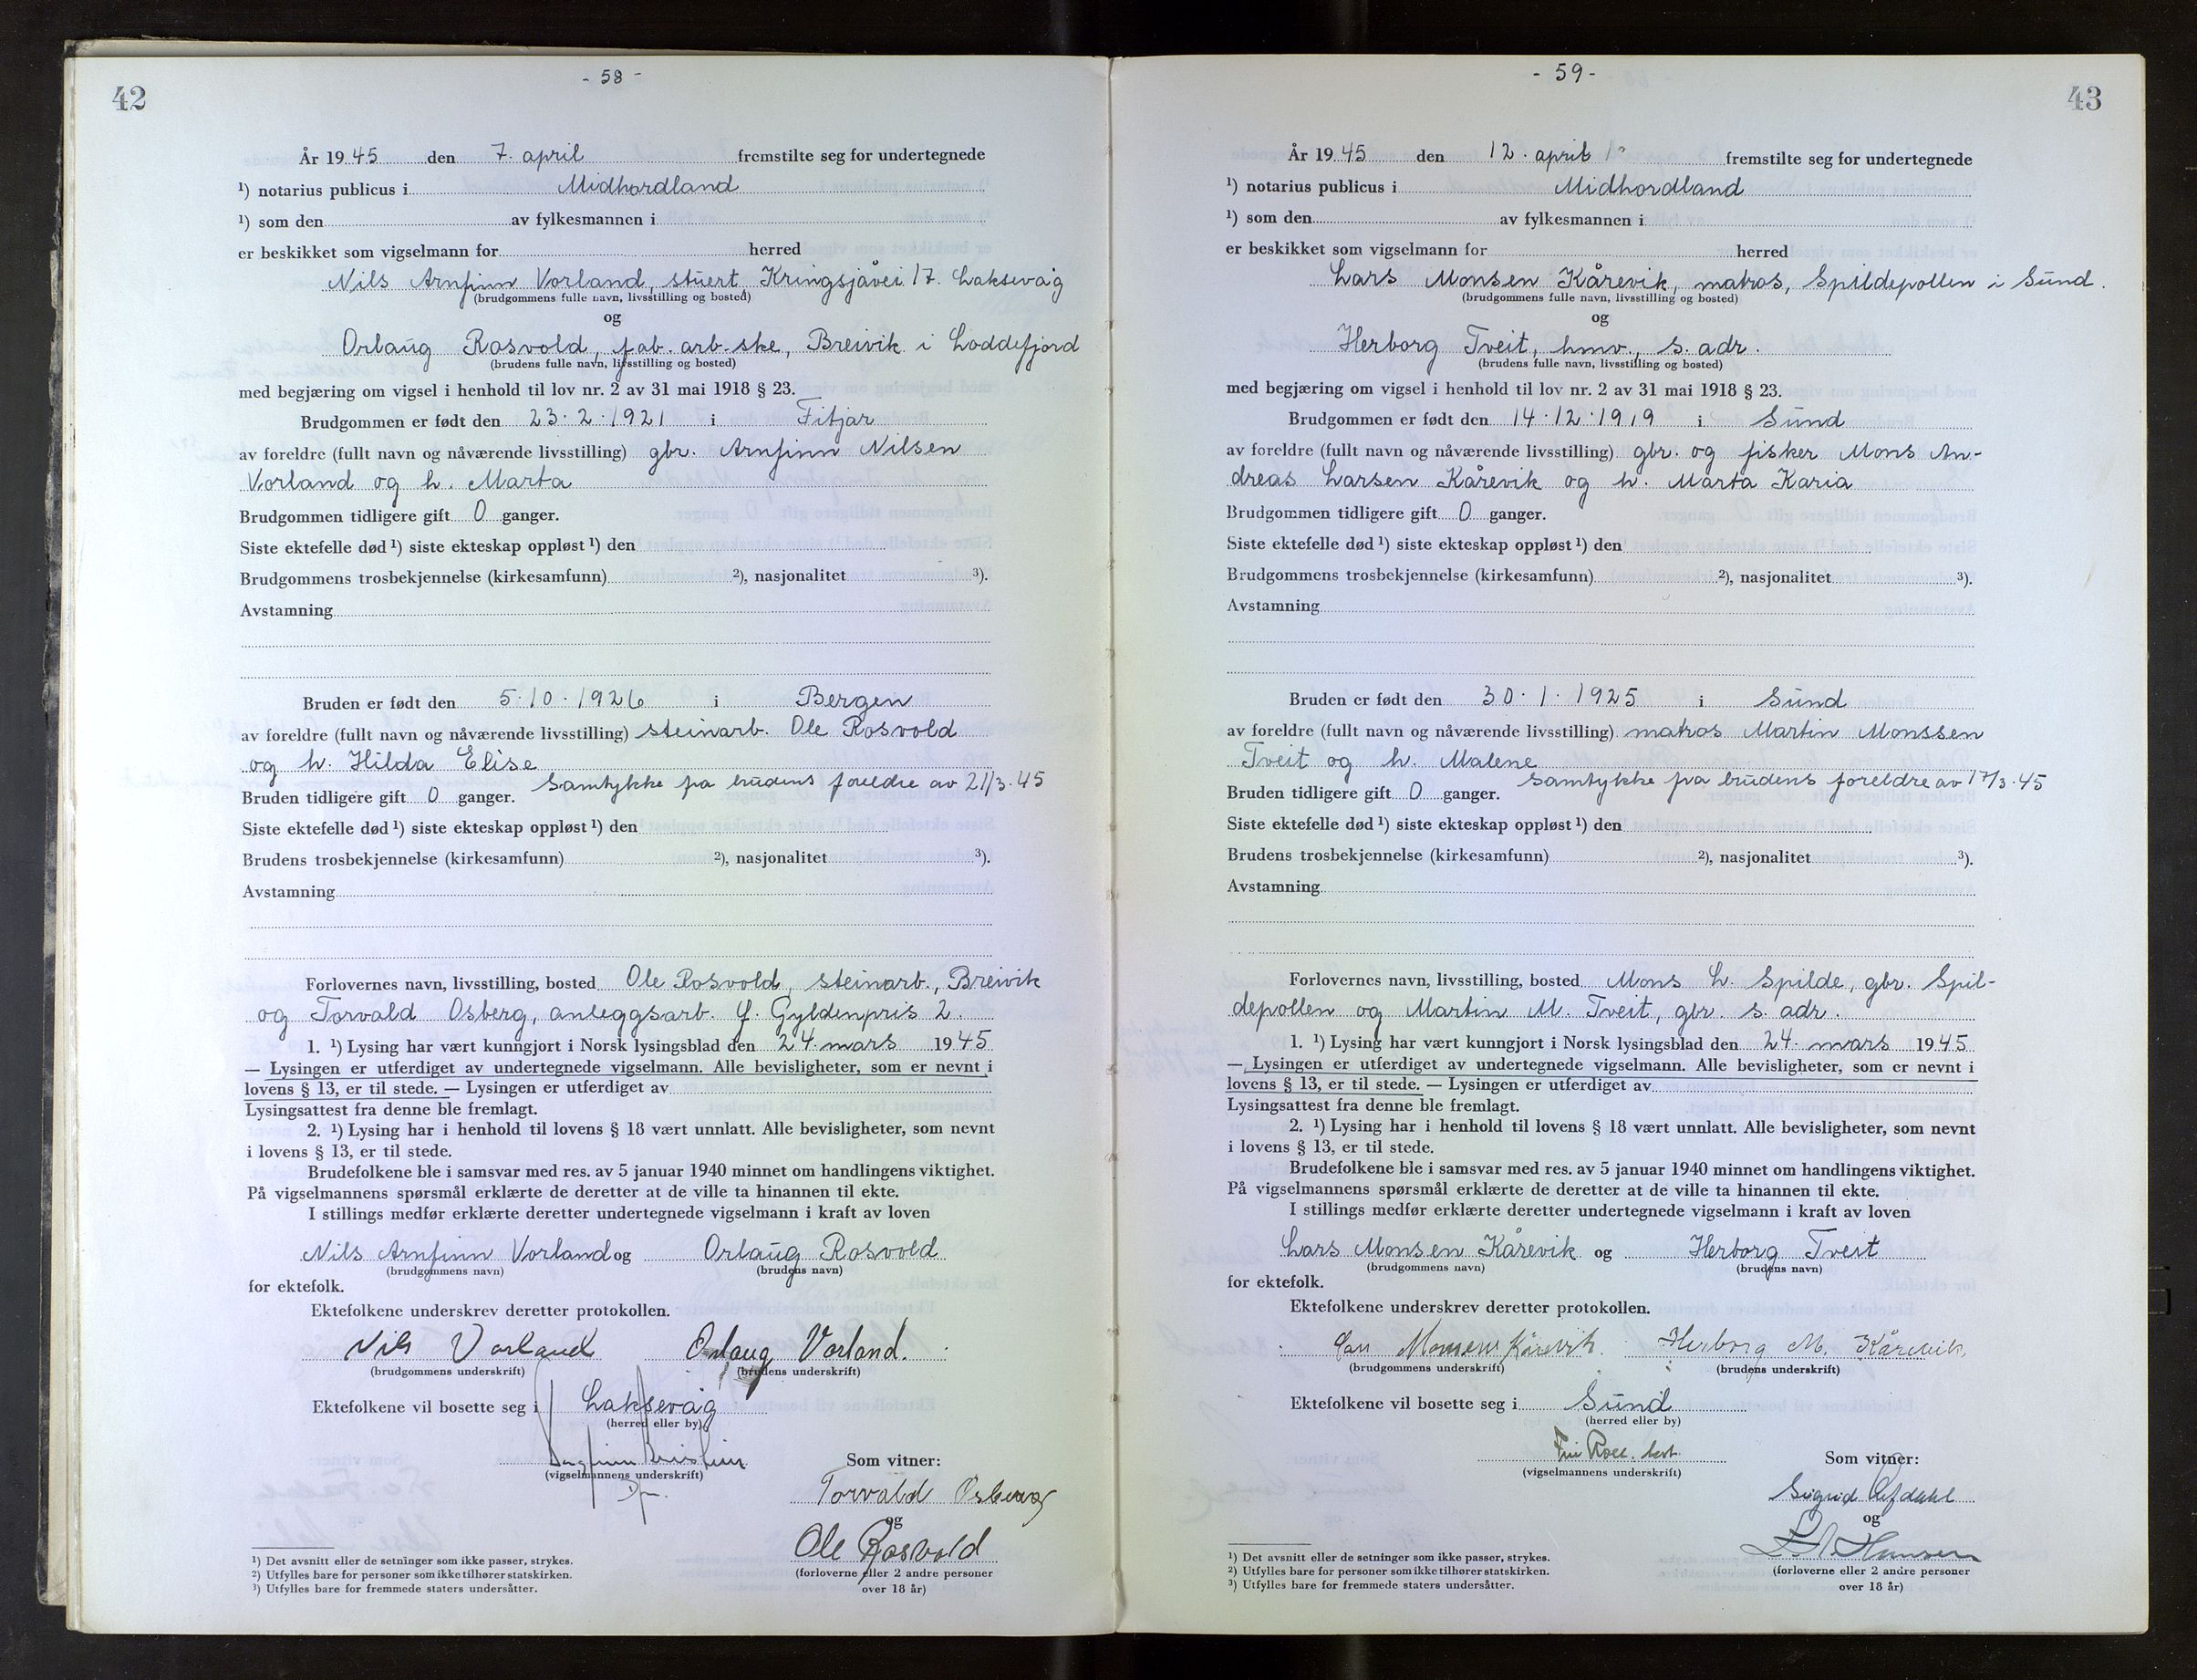 42
- 58 -
År 1945 den 7. april fremstilte seg for undertegnede
¹) notarius publicus i Midhordland
¹) som den av fylkesmannen i
er beskikket som vigselmann for herred
Nils Arnfinn Vorland, stuert Kringsjåvei 17. Laksevåg
(brudgommens fulle navn, livsstilling og bosted)
og
Orlaug Rosvold, fab. arb.ske, Breivik i Loddefjord
(brudens fulle navn, livsstilling og bosted)
med begjæring om vigsel i henhold til lov nr. 2 av 31 mai 1918 § 23.
Brudgommen er født den 23.2.1921 i Fitjar
av foreldre (fullt navn og nåværende livsstilling) gbr. Arnfinn Nilsen
Vorland og h. Marta
Brudgommen tidligere gift 0 ganger.
Siste ektefelle død ¹) siste ekteskap oppløst ¹) den
Brudgommens trosbekjennelse (kirkesamfunn) ²), nasjonalitet ³).
Avstamning
Bruden er født den 5.10.1926 i Bergen
av foreldre (fullt navn og nåværende livsstilling) steinarb. Ole Rosvold
og h. Hilda Elise
Bruden tidligere gift 0 ganger. Samtykke fra brudens foreldre av 21/3.45
Siste ektefelle død ¹) siste ekteskap oppløst ¹) den
Brudens trosbekjennelse (kirkesamfunn) ²), nasjonalitet ³).
Avstamning
Forlovernes navn, livsstilling, bosted Ole Rosvold, steinarb., Breivik
og Torvald Osberg, anleggsarb. Y. Gyldenpris 2.
1. ¹) Lysing har vært kunngjort i Norsk lysingsblad den 24. mars 1945
— Lysingen er utferdiget av undertegnede vigselmann. Alle bevisligheter, som er nevnt i
lovens § 13, er til stede. — Lysingen er utferdiget av
Lysingsattest fra denne ble fremlagt.
2. ¹) Lysing har i henhold til lovens § 18 vært unnlatt. Alle bevisligheter, som nevnt
i lovens § 13, er til stede.
Brudefolkene ble i samsvar med res. av 5 januar 1940 minnet om handlingens viktighet.
På vigselmannens spørsmål erklærte de deretter at de ville ta hinannen til ekte.
I stillings medfør erklærte deretter undertegnede vigselmann i kraft av loven
Nils Arnfinn Vorland og Orlaug Rosvold
(brudgommens navn) (brudens navn)
for ektefolk.
Ektefolkene underskrev deretter protokollen.
Nils Vorland Orlaug Vorland.
(brudgommens underskrift) (brudens underskrift)
Ektefolkene vil bosette seg i Laksevåg
(herred eller by)
(vigselmannens underskrift)
Som vitner:
Torvald Osberg
og
Ole Rosvold
(forloverne eller 2 andre personer
over 18 år)
¹) Det avsnitt eller de setninger som ikke passer, strykes.
²) Utfylles bare for personer som ikke tilhører statskirken.
³) Utfylles bare for fremmede staters undersåtter.
43
- 59 -
År 1945 den 12. april fremstilte seg for undertegnede
¹) notarius publicus i Midhordland
¹) som den av fylkesmannen i
er beskikket som vigselmann for herred
Lars Monsen Kårevik, matros, Spildepollen i Sund.
(brudgommens fulle navn, livsstilling og bosted)
og
Herborg Tveit, hmv., s. adr.
(brudens fulle navn, livsstilling og bosted)
med begjæring om vigsel i henhold til lov nr. 2 av 31 mai 1918 § 23.
Brudgommen er født den 14.12.1919 i Sund
av foreldre (fullt navn og nåværende livsstilling) gbr. og fisker Mons An-
dreas Larsen Kårevik og h. Marta Karia
Brudgommen tidligere gift 0 ganger.
Siste ektefelle død ¹) siste ekteskap oppløst ¹) den
Brudgommens trosbekjennelse (kirkesamfunn) ²), nasjonalitet ³).
Avstamning
Bruden er født den 30.1.1925 i Sund
av foreldre (fullt navn og nåværende livsstilling) matros Martin Monssen
Tveit og h. Malene
Bruden tidligere gift 0 ganger. Samtykke fra brudens foreldre av 17/3.45
Siste ektefelle død ¹) siste ekteskap oppløst ¹) den
Brudens trosbekjennelse (kirkesamfunn) ²), nasjonalitet ³).
Avstamning
Forlovernes navn, livsstilling, bosted Mons L. Spilde, gbr. Spil-
depollen og Martin M. Tveit, gbr. s. adr.
1. ¹) Lysing har vært kunngjort i Norsk lysingsblad den 24. mars 1945
— Lysingen er utferdiget av undertegnede vigselmann. Alle bevisligheter, som er nevnt i
lovens § 13, er til stede. — Lysingen er utferdiget av
Lysingsattest fra denne ble fremlagt.
2. ¹) Lysing har i henhold til lovens § 18 vært unnlatt. Alle bevisligheter, som nevnt
i lovens § 13, er til stede.
Brudefolkene ble i samsvar med res. av 5 januar 1940 minnet om handlingens viktighet.
På vigselmannens spørsmål erklærte de deretter at de ville ta hinannen til ekte.
I stillings medfør erklærte deretter undertegnede vigselmann i kraft av loven
Lars Monsen Kårevik og Herborg Tveit
(brudgommens navn) (brudens navn)
for ektefolk.
Ektefolkene underskrev deretter protokollen.
Lars Monsen Kårevik. Herborg M. Kårevik.
(brudgommens underskrift) (brudens underskrift)
Ektefolkene vil bosette seg i Sund
(herred eller by)
(vigselmannens underskrift)
Som vitner:
Sigrid
og
Hansen
(forloverne eller 2 andre personer
over 18 år)
¹) Det avsnitt eller de setninger som ikke passer, strykes.
²) Utfylles bare for personer som ikke tilhører statskirken.
³) Utfylles bare for fremmede staters undersåtter.